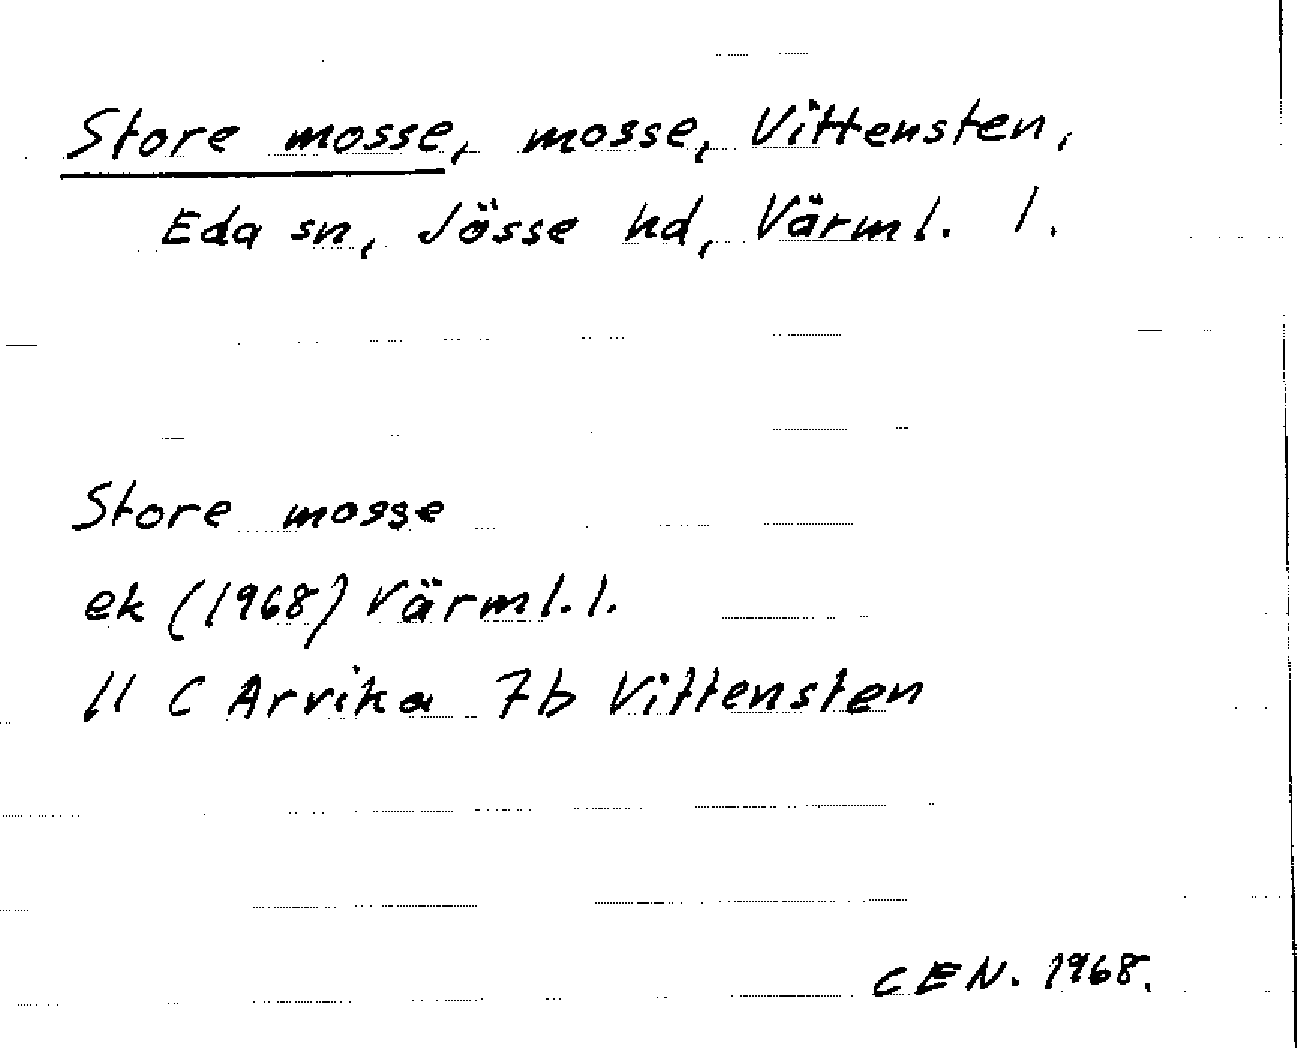 Store mosse, mosse, Vittensten,
Eda sn, Jösse hd, Värml. l.
Store mosse
ek (1968) Värml. l.
11 C Arvika 7b Vittensten
CEN. 1968.